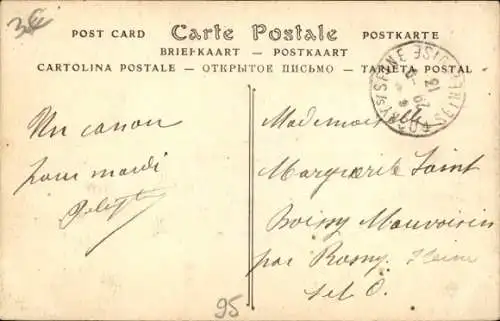 3€
POST CARD Carte Postale POSTKARTE
BRIEFKAART — POSTKAART
CARTOLINA POSTALE — ОТКРЫТОЕ ПИСЬМО — TARJETA POSTAL
Un canon
pour mardi
Mademoiselle
Marguerite Saint
Boissy Mauvoisin
par Rosny Seine
et O.
95